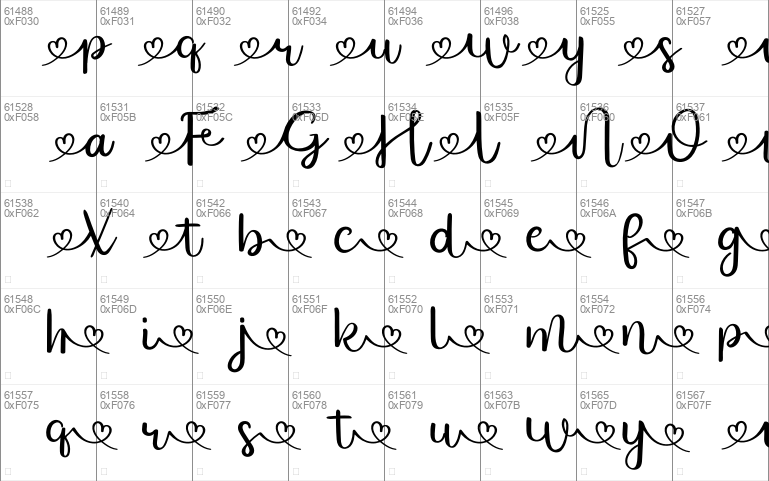 61488 61489 61490 61492 61494 61496 61525 61527
0xF030 0xF031 0xF032 0xF034 0xF036 0xF038 0xF055 0xF057
p q r u w y s
61528 61531 61532 61533 61534 61535 61536 61537
0xF058 0xF05B 0xF05C 0xF05D 0xF05E 0xF05F 0xF060 0xF061
a F G H L N O
61538 61540 61542 61543 61544 61545 61546 61547
0xF062 0xF064 0xF066 0xF067 0xF068 0xF069 0xF06A 0xF06B
X t b c d e f g
61548 61549 61550 61551 61552 61553 61554 61556
0xF06C 0xF06D 0xF06E 0xF06F 0xF070 0xF071 0xF072 0xF074
h i j k l m n p
61557 61558 61559 61560 61561 61563 61565 61567
0xF075 0xF076 0xF077 0xF078 0xF079 0xF07B 0xF07D 0xF07F
q r s t u w y